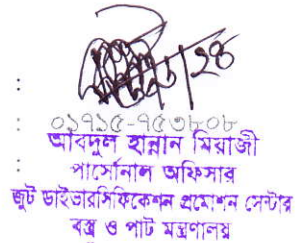 :
: ০১৭১৫-৭৫৬৮০৮
: আবদুল হান্নান মিয়াজী
পার্সোনাল অফিসার
জুট ডাইভারসিফিকেশন প্রমোশন সেন্টার
বস্ত্র ও পাট মন্ত্রণালয়